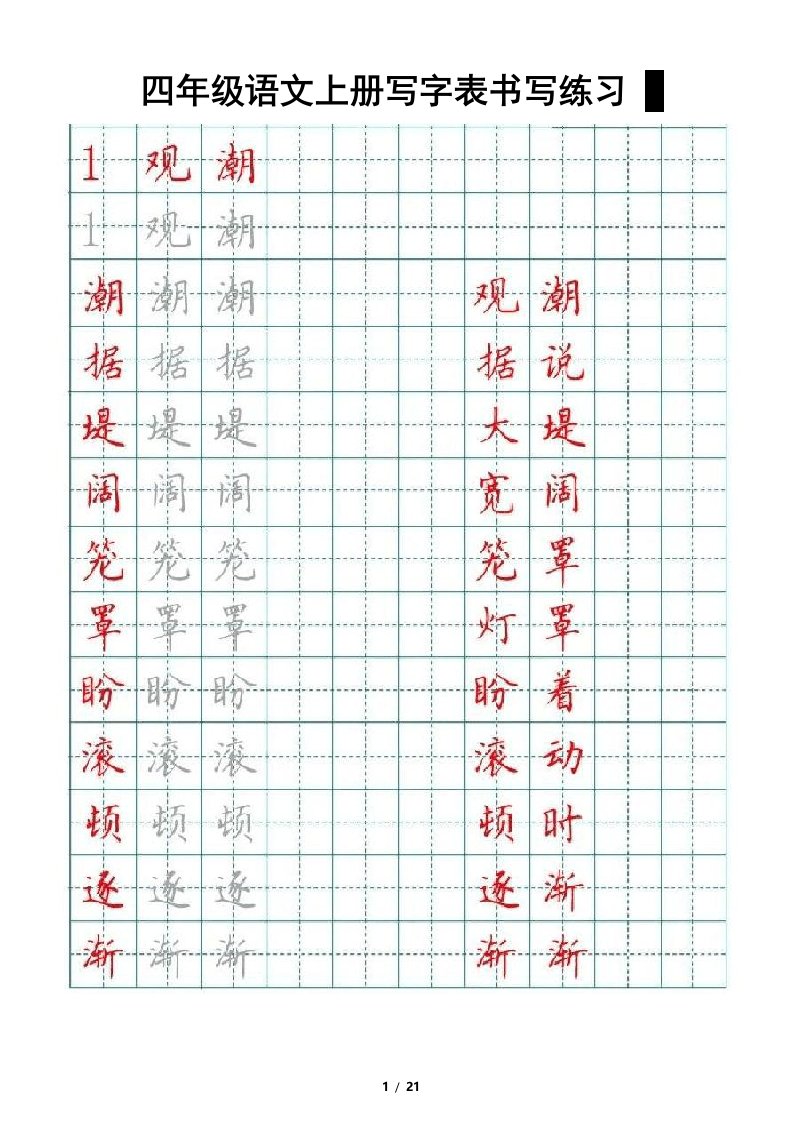 四年级语文上册写字表书写练习
1 观 潮
1 观 潮
潮 潮 潮 观 潮
据 据 据 据 说
堤 堤 堤 大 堤
阔 阔 阔 宽 阔
笼 笼 笼 笼 罩
罩 罩 罩 灯 罩
盼 盼 盼 盼 着
滚 滚 滚 滚 动
顿 顿 顿 顿 时
逐 逐 逐 逐 渐
渐 渐 渐 渐 渐
1 / 21